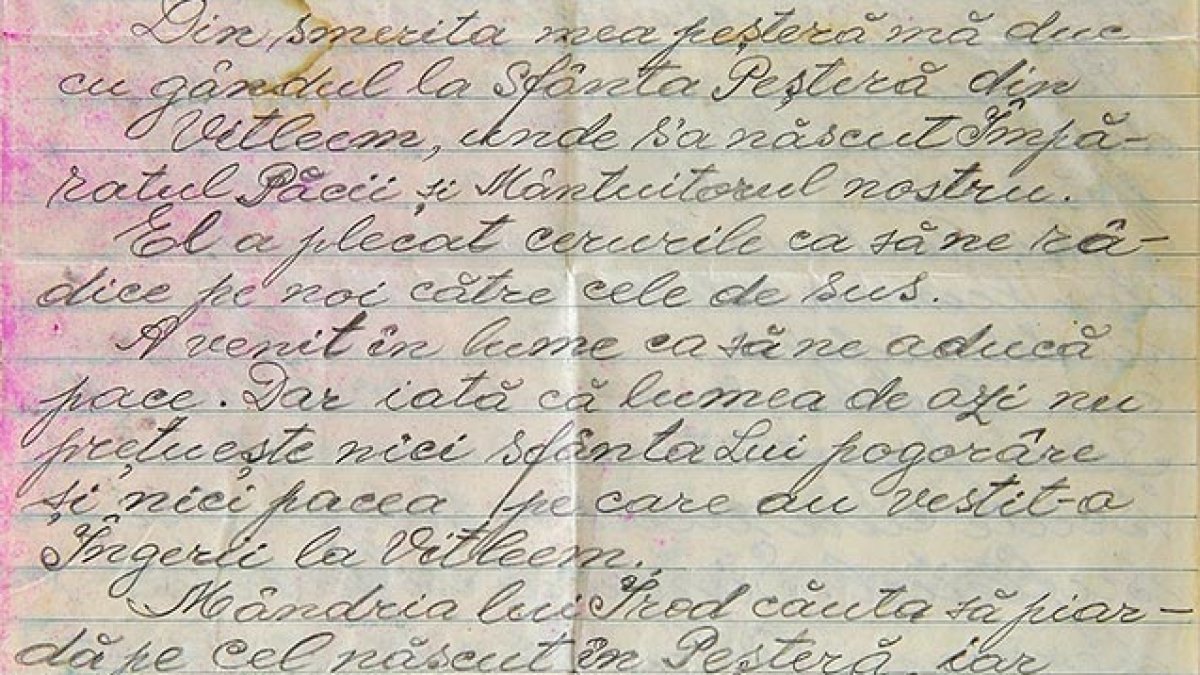 Din smerita mea peșteră mă duc
cu gândul la Sfânta Peșteră din
Vitleem, unde s'a născut Împă-
ratul Păcii și Mântuitorul nostru.
El a plecat cerurile ca să ne râ-
dice pe noi către cele de sus.
A venit în lume ca să ne aducă
pace. Dar iată că lumea de azi nu
prețuește nici Sfânta Lui pogorâre
și nici pacea pe care au vestit-o
Îngerii la Vitleem.
Mândria lui Irod căuta să piar-
dă pe cel născut în Peșteră, iar